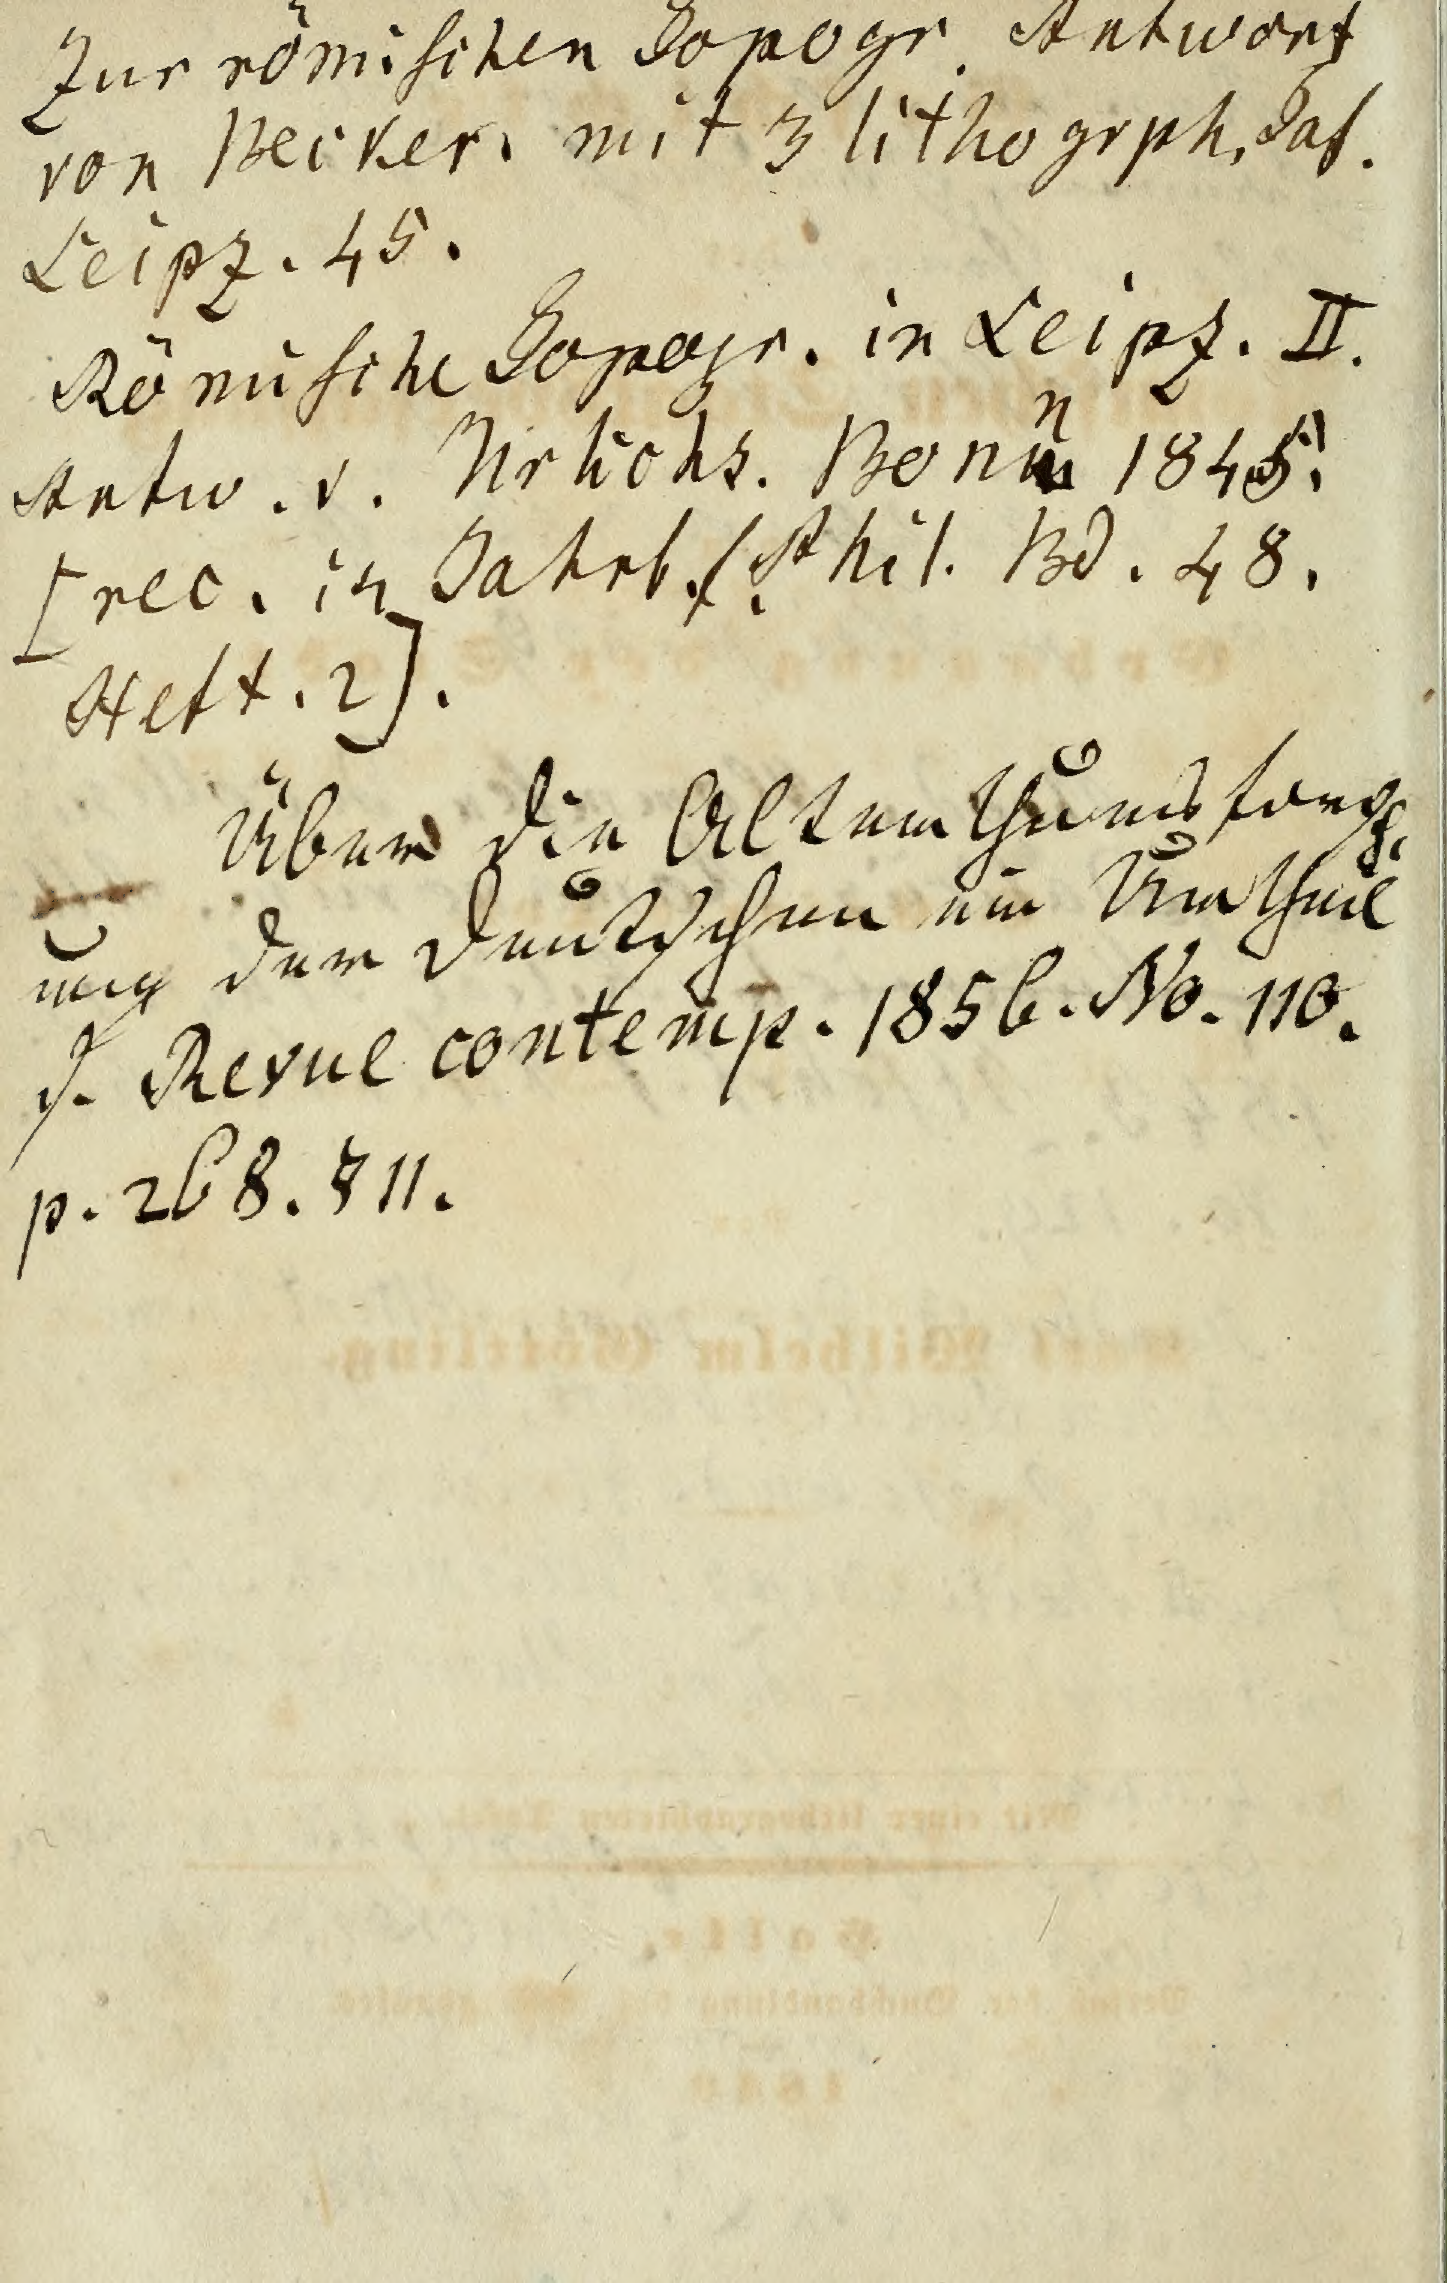 Zur römischen Topogr. Antwort
von Becker. mit 3 lithogrph. Taf.
Leipz. 45.
Römische Topogr. in Leipz. II.
Antw. v. Urlichs. Bonn 1845.
[rec. in Jahrb. f. Phil. Bd. 48.
Heft. 2].
Über die Alterthumsforsch.
ung der Deutschen ein Urtheil
s. Revue contemp. 1856. No. 110.
p. 268. 311.